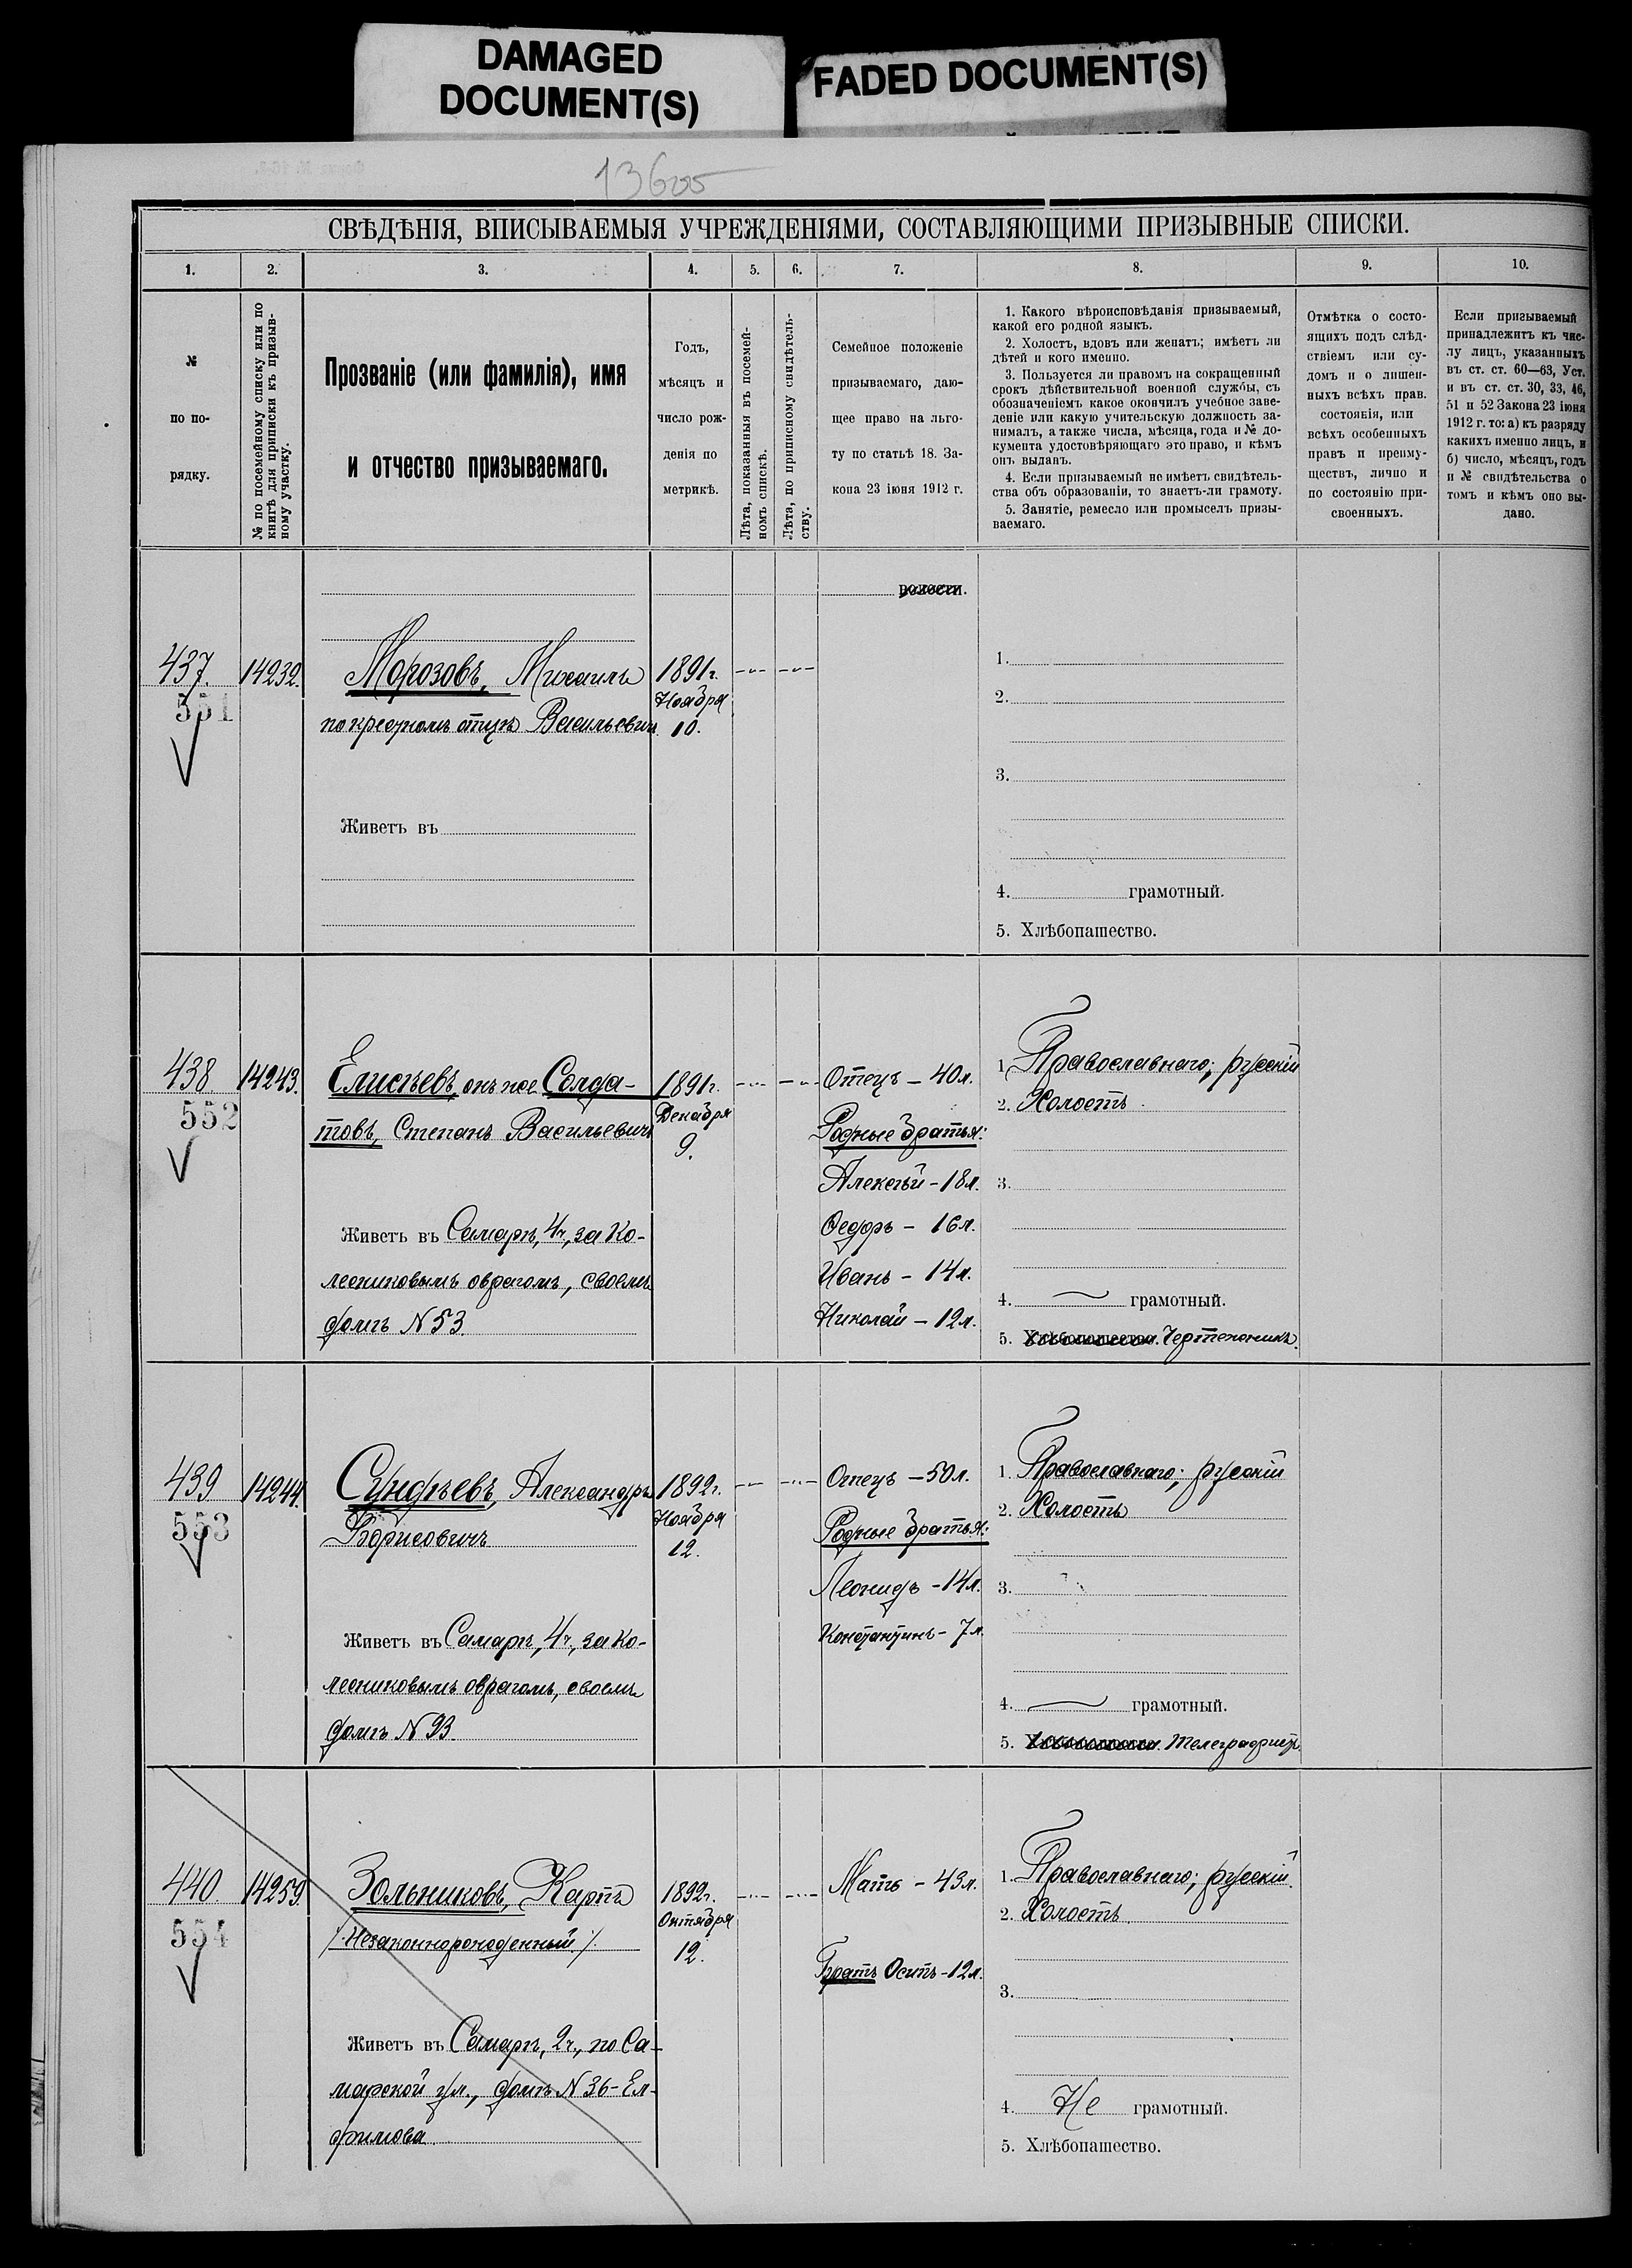 DAMAGED
DOCUMENT(S)
FADED DOCUMENT(S)
СВѢДѢНІЯ, ВПИСЫВАЕМЫЯ УЧРЕЖДЕНІЯМИ, СОСТАВЛЯЮЩИМИ ПРИЗЫВНЫЕ СПИСКИ.
1. 2. 3. 4. 5. 6. 7. 8. 9. 10.
№
по по-
рядку.
№ по посемейному списку или по
книгѣ для приписки къ призыв-
ному участку.
Прозваніе (или фамилія), имя
и отчество призываемаго.
Годъ,
мѣсяцъ и
число рож-
денія по
метрикѣ.
Лѣта, показанныя въ посемей-
номъ спискѣ.
Лѣта, по приписному свидѣтель-
ству.
Семейное положеніе
призываемаго, даю-
щее право на льго-
ту по статьѣ 18. За-
кона 23 іюня 1912 г.
1. Какого вѣроисповѣданія призываемый,
какой его родной языкъ.
2. Холостъ, вдовъ или женатъ; имѣетъ ли
дѣтей и кого именно.
3. Пользуется ли правомъ на сокращенный
срокъ дѣйствительной военной службы, съ
обозначеніемъ какое окончилъ учебное заве-
деніе или какую учительскую должность за-
нималъ, а также числа, мѣсяца, года и № до-
кумента удостовѣряющаго это право, и кѣмъ
онъ выданъ.
4. Если призываемый не имѣетъ свидѣтель-
ства объ образованіи, то знаетъ-ли грамоту.
5. Занятіе, ремесло или промыселъ призы-
ваемаго.
Отмѣтка о состо-
ящихъ подъ слѣд-
ствіемъ или су-
домъ и о лишен-
ныхъ всѣхъ прав.
состоянія, или
всѣхъ особенныхъ
правъ и преиму-
ществъ, лично и
по состоянію при-
своенныхъ.
Если призываемый
принадлежитъ къ чис-
лу лицъ, указанныхъ
въ ст. ст. 60—63, Уст.
и въ ст. ст. 30, 33, 46,
51 и 52 Закона 23 іюня
1912 г. то: а) къ разряду
какихъ именно лицъ, и
б) число, мѣсяцъ, годъ
и № свидѣтельства о
томъ и кѣмъ оно вы-
дано.
волости.
437. 14232. Морозовъ, Михаилъ
551
по крестному отцу Васильевичъ
1891 г.
Ноября
10.
Живетъ въ
1.
2.
3.
4. грамотный.
5. Хлѣбопашество.
438. 14243. Елисѣевъ, онъ же Солда-
552
товъ, Степанъ Васильевичъ
1891 г.
Декабря
9.
Живетъ въ Самарѣ, 4 ч., за Ко-
лесниковымъ оврагомъ, своемъ
домѣ N 53.
Отецъ – 40 л.
Родные братья:
Алексѣй – 18 л.
Ѳедоръ – 16 л.
Иванъ – 14 л.
Николай – 12 л.
1. Православнаго; русскій
2. Холостъ
3.
4. грамотный.
5. Хлѣбопашество. Чертежникъ.
439 14244. Сундѣевъ, Александръ
553
Борисовичъ
1892 г.
Ноября
12.
Живетъ въ Самарѣ, 4 ч., за Ко-
лесниковымъ оврагомъ, своемъ
домѣ N 93.
Отецъ – 50 л.
Родные братья:
Леонидъ – 14 л.
Константинъ – 7 л.
1. Православнаго; русскій
2. Холостъ
3.
4. грамотный.
5. Хлѣбопашество. Телеграфистъ.
440. 14259. Зольниковъ, Карпъ
554
/Незаконнорожденный/.
1892 г.
Октября
12.
Живетъ въ Самарѣ, 2 ч., по Са-
марской ул., домъ N 36 – Ел-
фимова
Мать – 43 л.
Братъ Осипъ – 12 л.
1. Православнаго; русскій.
2. Холостъ.
3.
4. Не грамотный.
5. Хлѣбопашество.